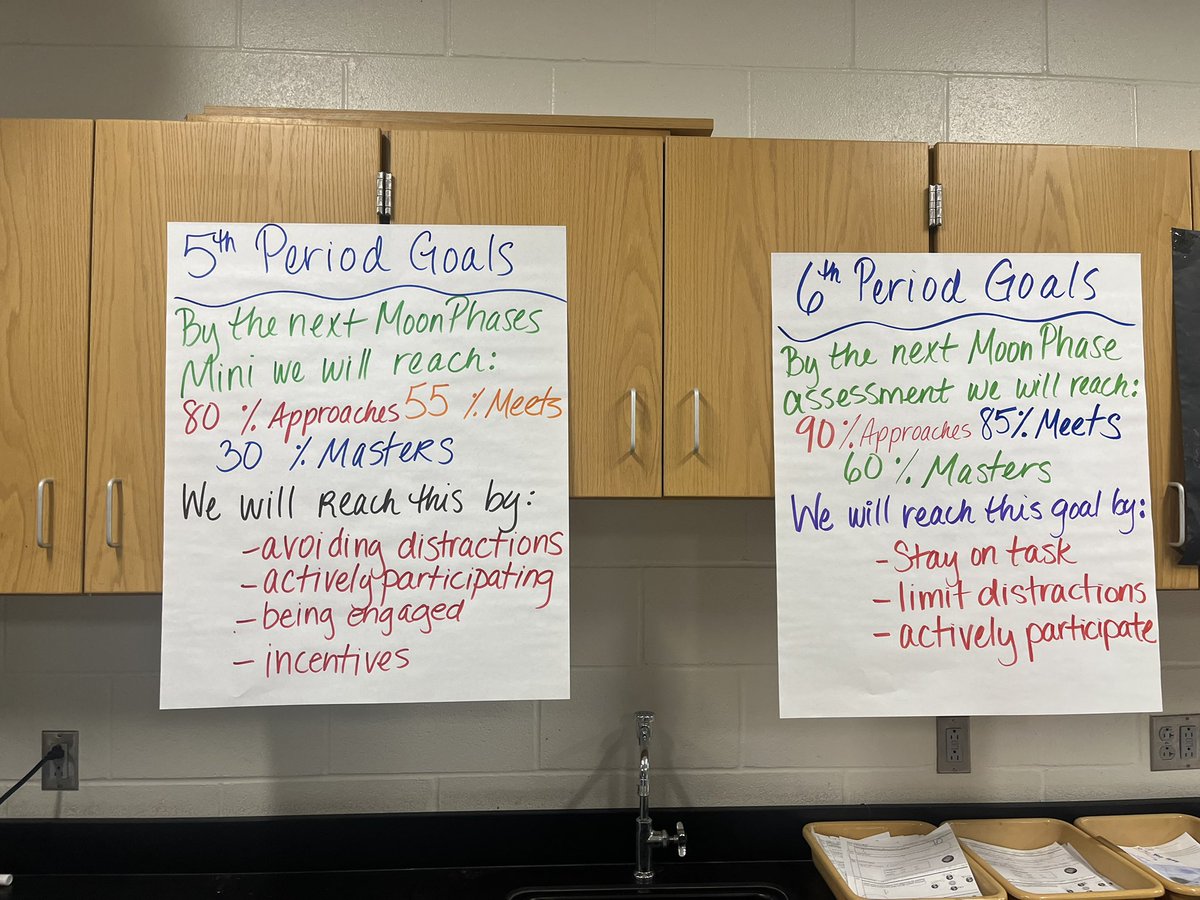 5th Period Goals
By the next Moon Phases
Mini we will reach:
80 % Approaches 55 % Meets
30 % Masters
We will Reach this by:
- avoiding distractions
- actively participating
- being engaged
- incentives
6th Period Goals
By the next Moon Phase
assessment we will reach:
90% Approaches 85% Meets
60 % Masters
We will reach this goal by:
- Stay on task
- limit distractions
- actively participate